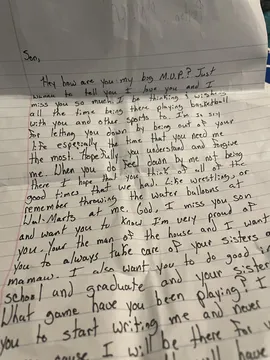 Son,
Hey how are you my big M.V.P? Just
wanted to tell you I love you and I
miss you so much. I be thinking & wishing
all the time being there playing basketball
with you and other sports to. I'm so sorry
for letting you down by being out of your
life especially the time that you need me
the most. Hopefully you understand and forgive
me. When you do feel down by me not being
there I hope you think of all the
good times that we had. Like wrestling, or
remember throwing the water balloons at
Wal-Marts at me. God, I miss you son
and want you to know I'm very proud of
you. Your the man of the house and I want
you to always take care of your sisters a
mamaw. I also want you to do good in
school and graduate and your sister
What game have you been playing? I
you to start writing me and never
cause I will be there for